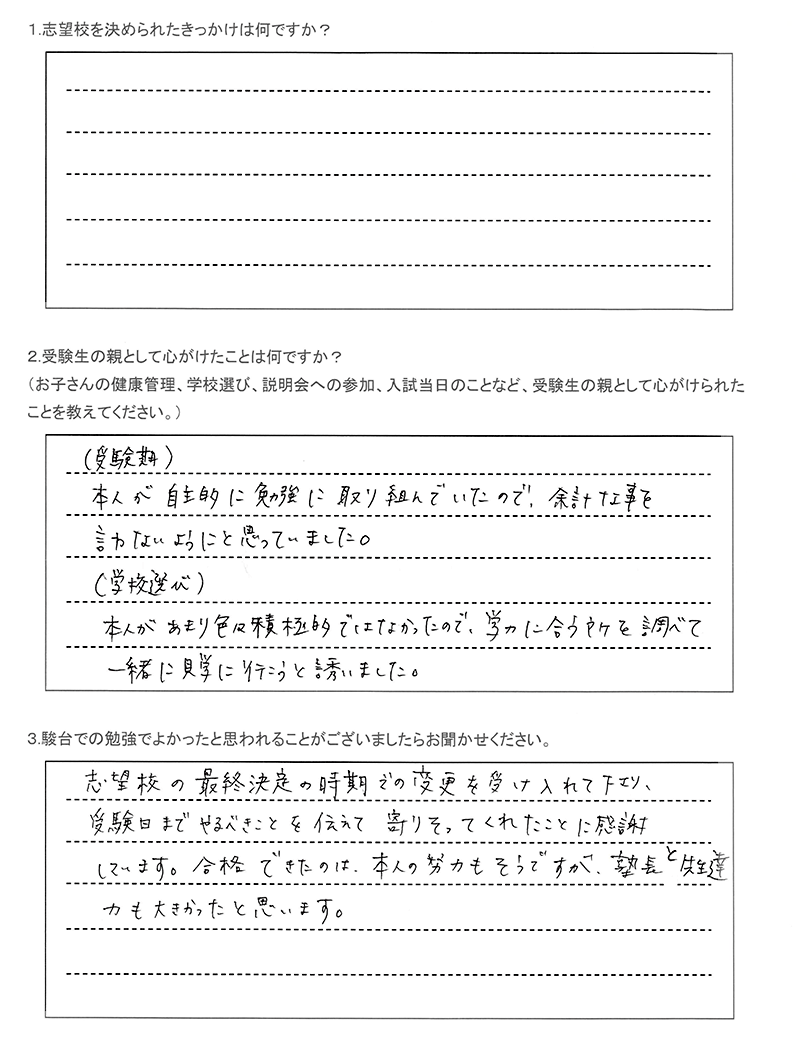 1.志望校を決められたきっかけは何ですか？
2.受験生の親として心がけたことは何ですか？
（お子さんの健康管理、学校選び、説明会への参加、入試当日のことなど、受験生の親として心がけられた
ことを教えてください。）
(受験期)
本人が自主的に勉強に取り組んでいたので、余計な事を
言わないようにと思っていました。
(学校選び)
本人があまり色々積極的ではなかったので、学力に合う所を調べて
一緒に見学に行こうと誘いました。
3.駿台での勉強でよかったと思われることがございましたらお聞かせください。
志望校の最終決定の時期での変更を受け入れて下さり、
受験日までやるべきことを伝えて寄りそってくれたことに感謝
しています。合格できたのは、本人の努力もそうですが、塾長と先生達
力も大きかったと思います。